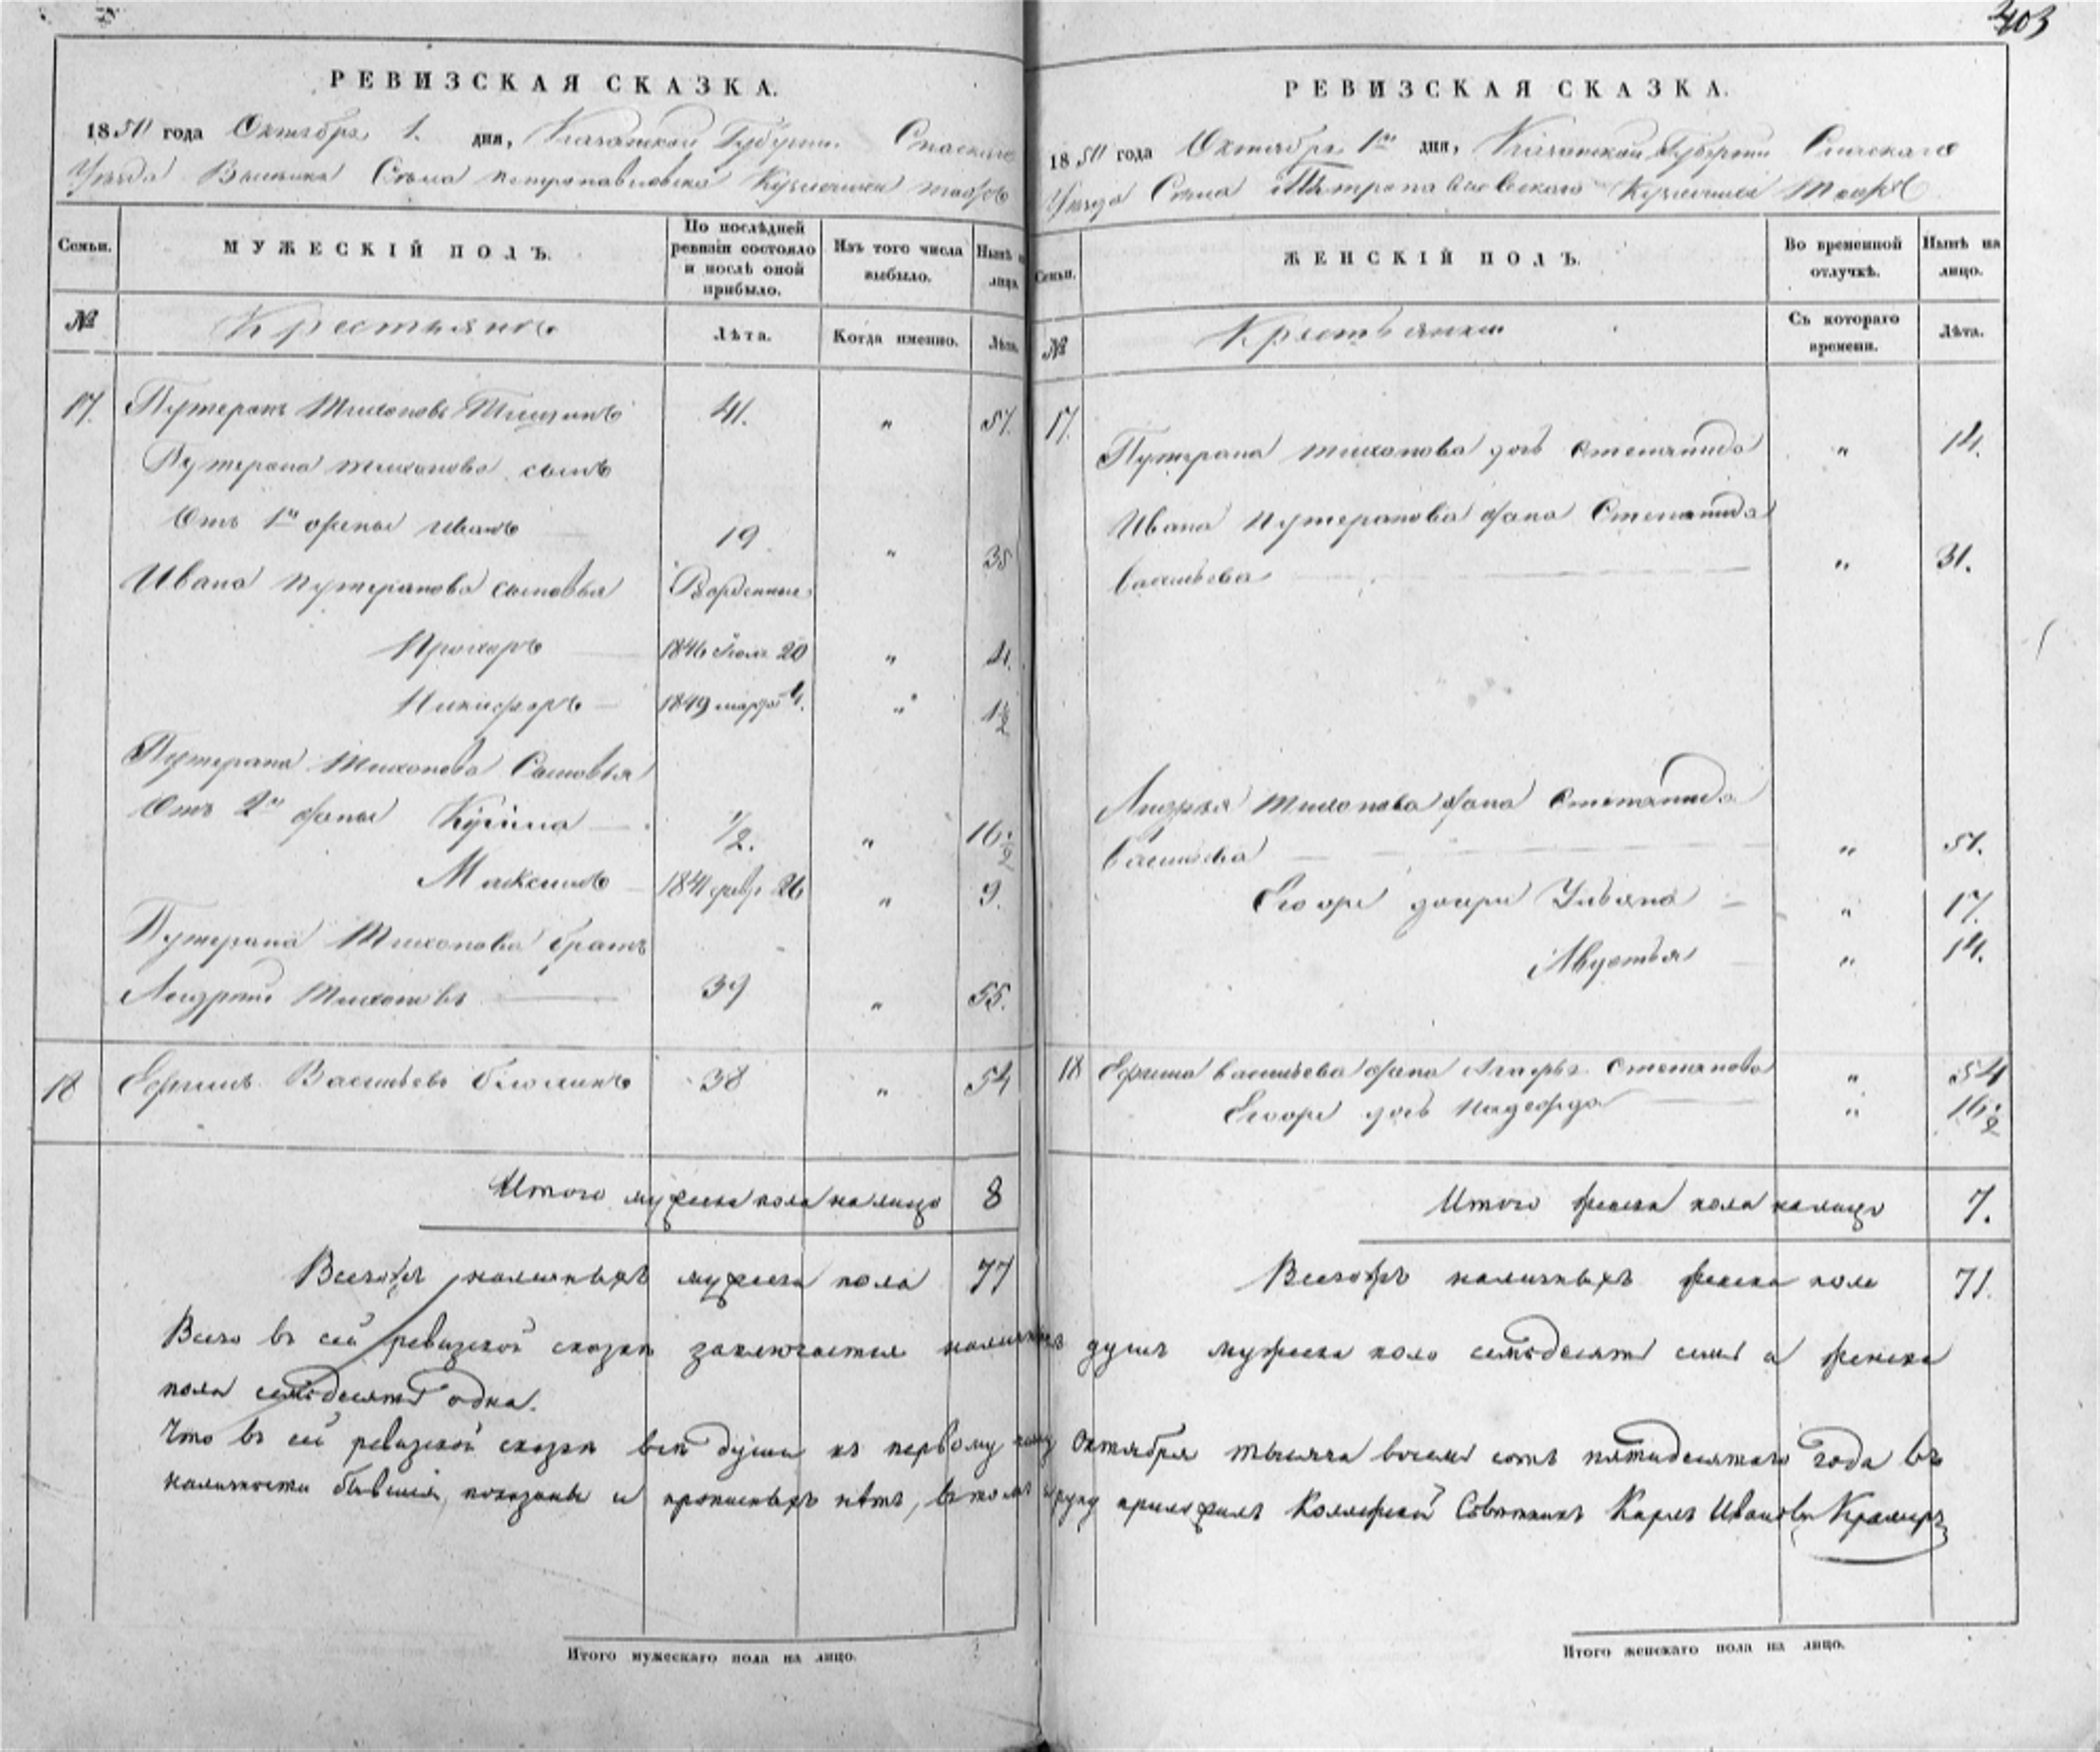 403
РЕВИЗСКАЯ СКАЗКА.
1850 года Октября 1. дня, Казанской Губерніи Спаскаго
Уѣзда Села Петропавловска Кузнечиха тожъ
Семьи. МУЖЕСКІЙ ПОЛЪ. По послѣдней ревизіи состояло и послѣ оной прибыло. Изъ того числа выбыло. Нынѣ на лицо.
№ Крестьяне Лѣта. Когда именно. Лѣта.
17. Тихоновъ 41. " 57.
Тихонова сынъ
Отъ 1й жены Иванъ 19 " 35
Ивана сыновья Рожденные
Прохоръ 1846 Июля 20 " 4.
Никифоръ 1849 марта 4. " 1½
Тихонова Сыновья
Отъ 2й жены Кузма ½. " 16½
Максимъ 1841 февр 26 " 9.
Тихонова братъ
Андрей Тихоновъ 39 " 55.
18 Ефимъ Васильевъ 38 " 54
Итого мужеска пола на лицо 8
Всего же наличныхъ мужеска пола 77
РЕВИЗСКАЯ СКАЗКА.
1850 года Октября 1го дня, Казанской Губерніи Спаскаго
Уѣзда Села Петропавловскаго Кузнечиха Тожъ
Семьи. ЖЕНСКІЙ ПОЛЪ. Во временной отлучкѣ. Нынѣ на лицо.
№ Крестьянки Съ котораго времени. Лѣта.
17. Тихонова дочь Степанида " 14.
Ивана жена Степанида
Васильева " 31.
Андрея Тихонова жена Степанида
Васильева " 51.
Ево дочери Ульяна " 17.
Авдотья " 14.
18 Ефима Васильева жена Степанова " 54
Ево дочь Надежда " 16½
Итого женска пола на лицо 7.
Всего же наличныхъ женска пола 71.
Всего въ сей ревизской сказкѣ заключается наличныхъ душъ мужеска пола семьдесятъ семь а женска
пола семьдесятъ одна.
Что въ сей ревизской сказкѣ всѣ души къ первому числу Октября тысяча восемь сотъ пятидесятаго года въ
наличности бывшія, показаны и прописныхъ нѣтъ, въ томъ и руку приложилъ Коллежскій Совѣтникъ Карлъ Ивановъ Крамеръ
Итого мужескаго пола на лицо.
Итого женскаго пола на лицо.